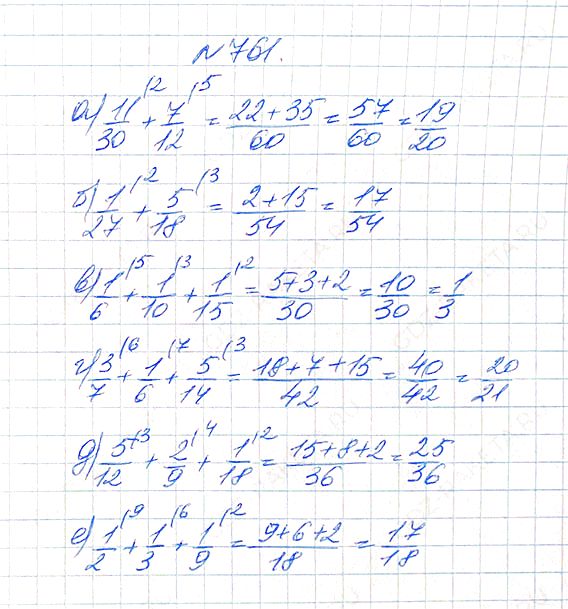 № 761.
а) 11/30 |2 + 7/12 |5 = (22+35)/60 = 57/60 = 19/20
б) 1/27 |2 + 5/18 |3 = (2+15)/54 = 17/54
в) 1/6 |5 + 1/10 |3 + 1/15 |2 = (5+3+2)/30 = 10/30 = 1/3
г) 3/7 |6 + 1/6 |7 + 5/14 |3 = (18+7+15)/42 = 40/42 = 20/21
д) 5/12 |3 + 2/9 |4 + 1/18 |2 = (15+8+2)/36 = 25/36
е) 1/2 |9 + 1/3 |6 + 1/9 |2 = (9+6+2)/18 = 17/18